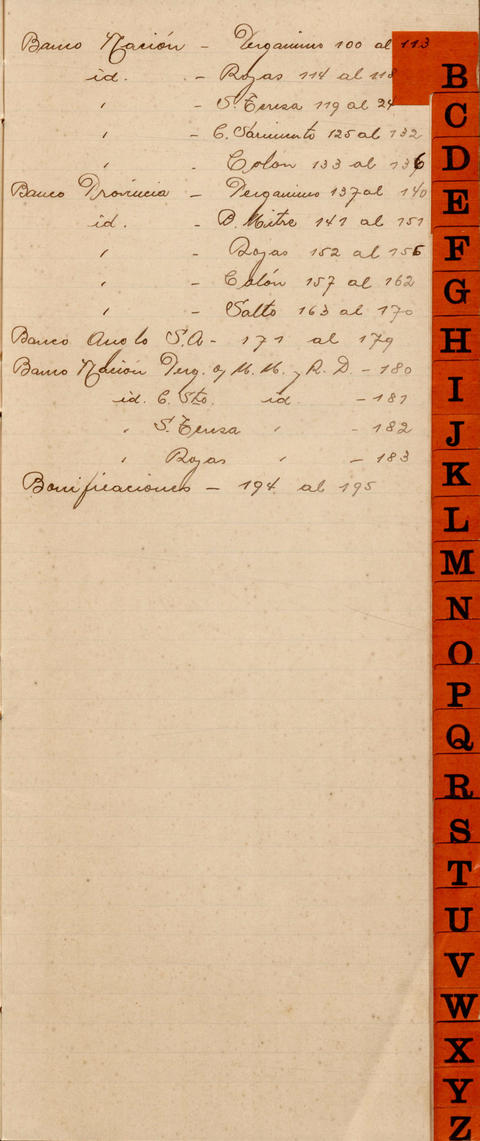 Banco Nación - Pergamino 100 al 113
id. - Rojas 114 al 118
" - S. Teresa 119 al 24
" - C. Sarmiento 125 al 132
" - Colon 133 al 136
Banco Provincia - Pergamino 137 al 140
id. - B. Mitre 141 al 151
" - Rojas 152 al 156
" - Colón 157 al 162
" - Salto 163 al 170
Banco Anglo S.A - 171 al 179
Banco Nación Perg. M. M. y R. D. - 180
id. C. Sto. id. - 181
" S. Teresa " - 182
" Rojas " - 183
Bonificaciones - 194 al 195
B
C
D
E
F
G
H
I
J
K
L
M
N
O
P
Q
R
S
T
U
V
W
X
Y
Z